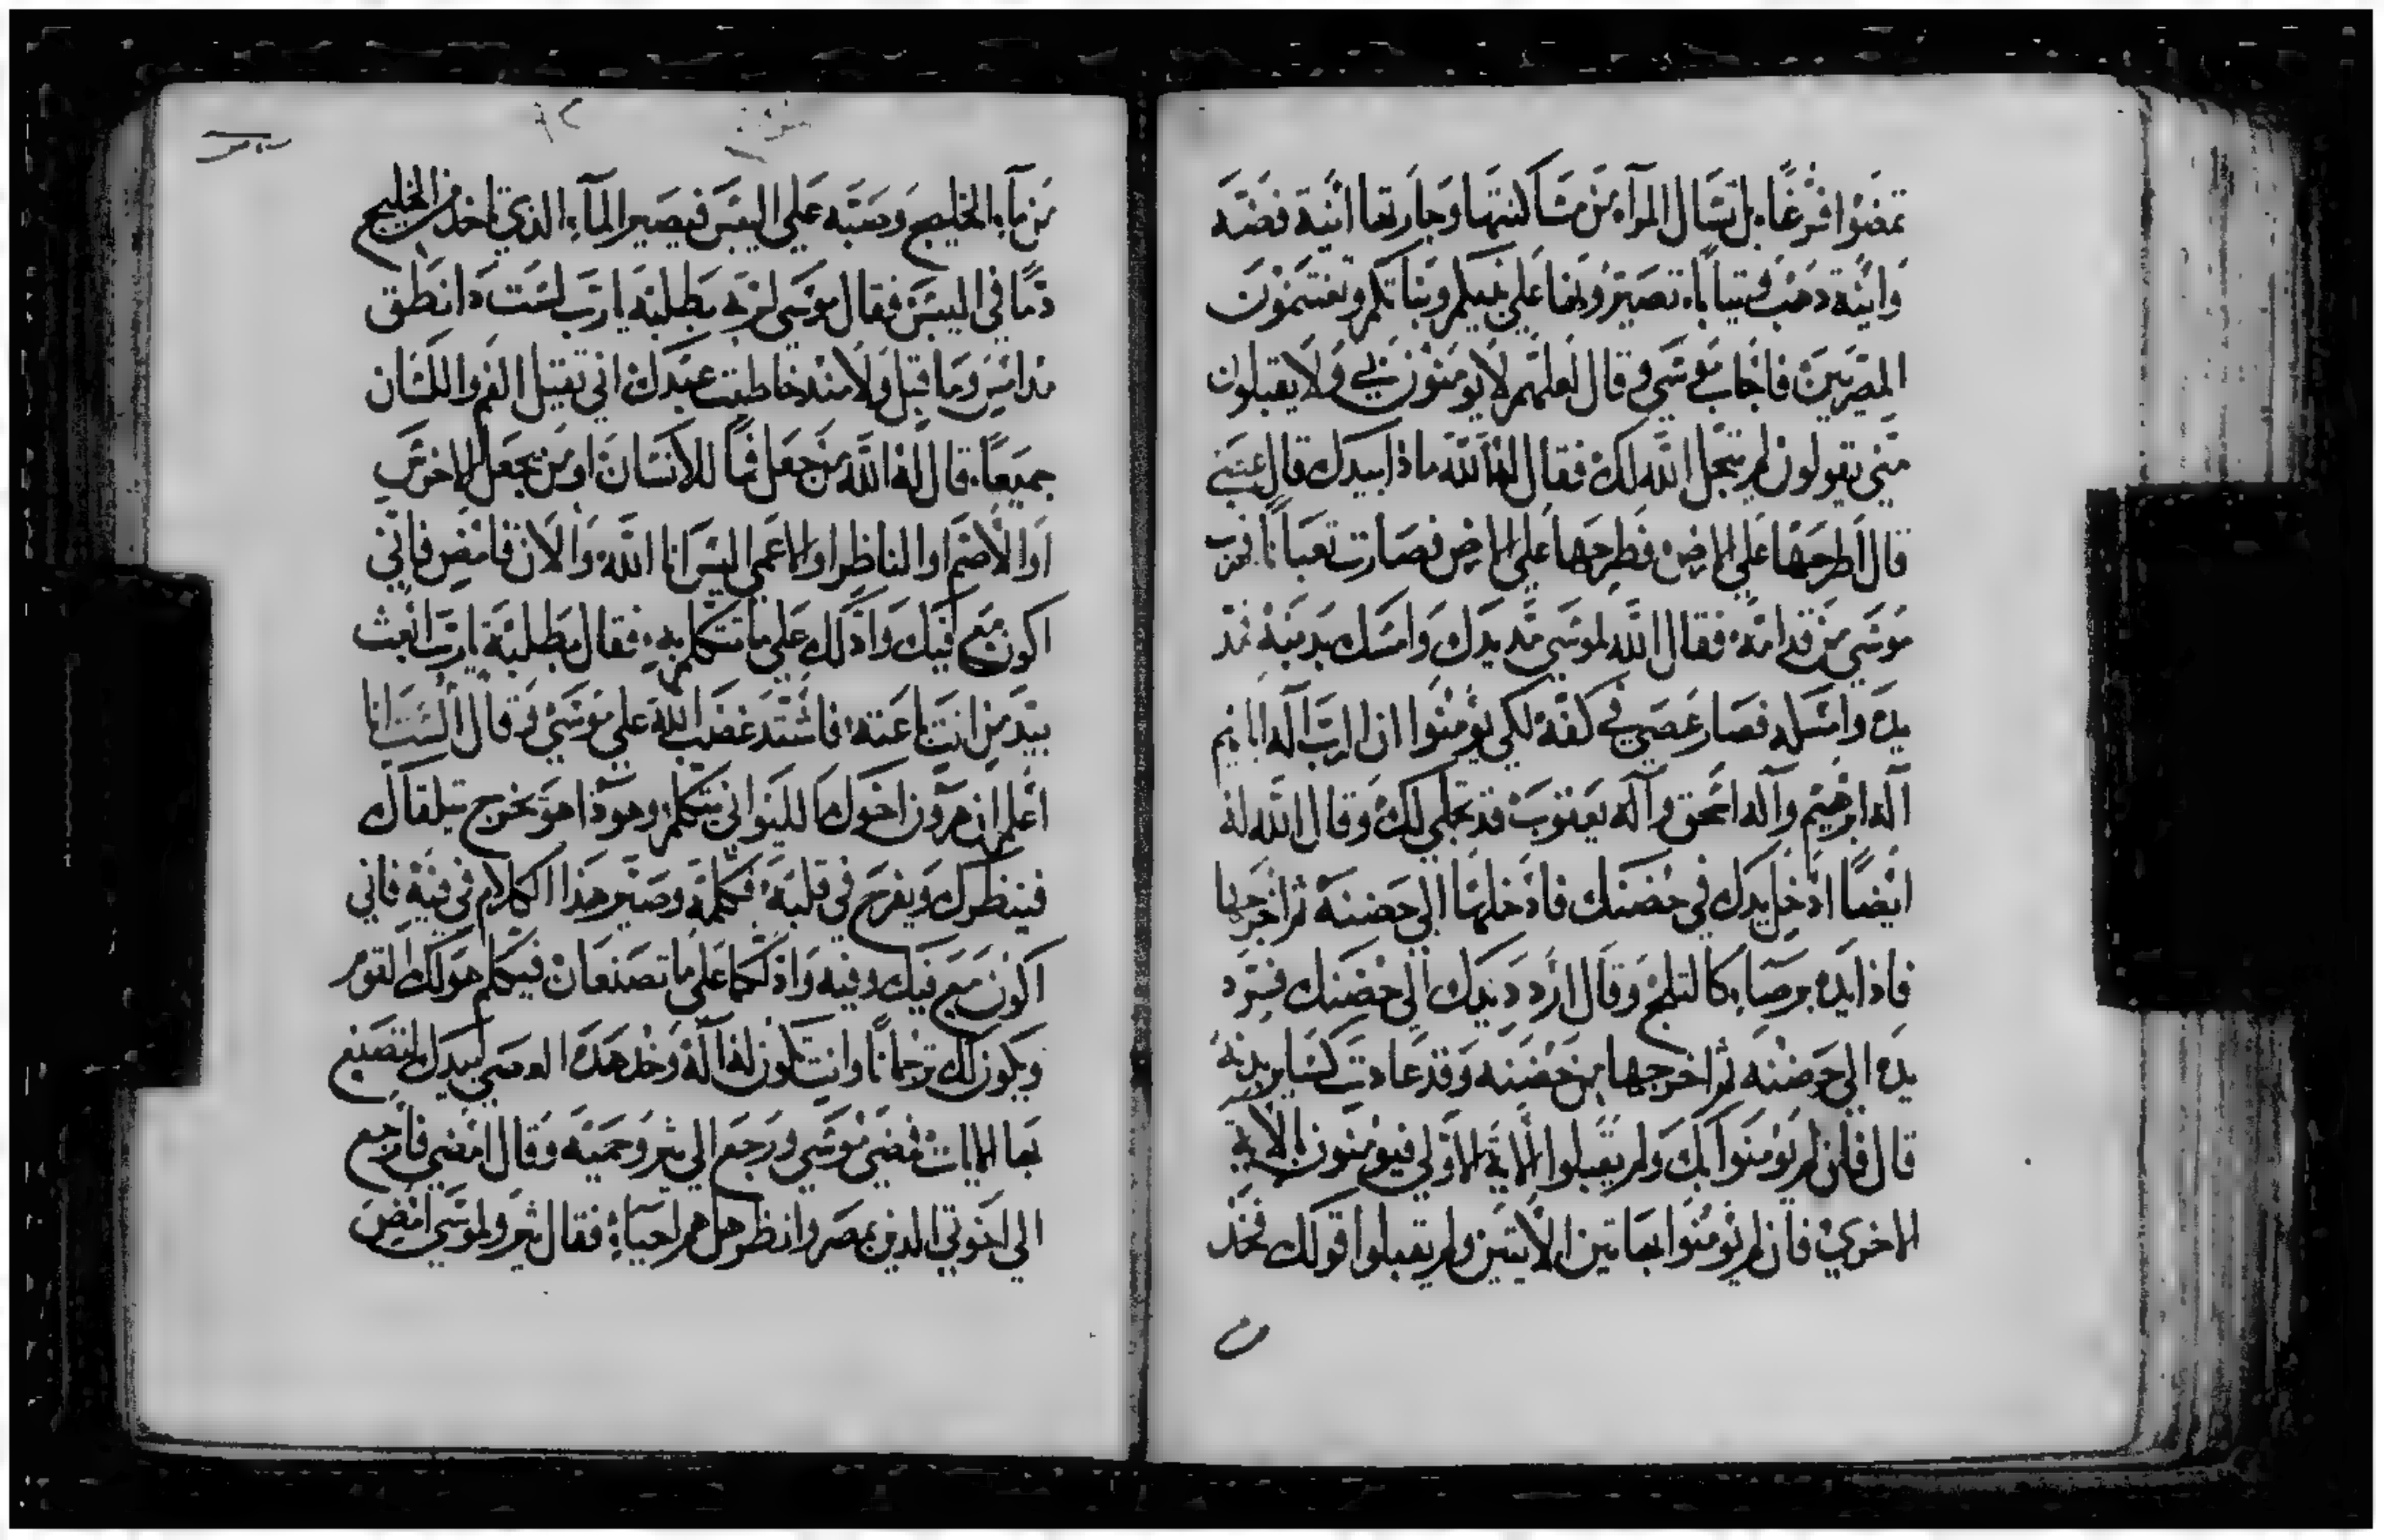 تمضوا فرغًا بل تسال المرآه من مساكنتها وجارتها انية فضة
وانية دهب وتيابًا تصيروها على بنيكم وبناتكم وتغتنمون
المصريين فاجاب موسى وقال لعلهم لا يومنون بي ولا يقبلون
مني يقولون لم يتجل الله لك فقال له الله ماذا بيدك قال عصي
قال اطرحها على الارض فطرحها على الارض فصارت تعبانًا فهرب
موسى من قدامه فقال الله لموسى مد يدك وامسك بدنبه فمد
يده وامسكه فصار عصي في كفه لكي يومنوا ان الرب اله ابايهم
آله ابرهيم وآله اسحق وآله يعقوب قد تجلى لك وقال الله له
ايضًا ادخل يدك في حضنك فادخلها الى حضنه ثم اخرجها
فاذا يده برصاء كالتلج وقال اردد يدك الى حضنك فرد
يده الى حضنه ثم اخرجها من حضنه وقد عادت كساير بدنه
قال فان لم يومنوا بك ولم يقبلوا الاية الاولى فيومنون بالاية
الاخرى فان لم يومنوا بهاتين الآيتين ولم يقبلوا قولك فخذ
من مآء الخليج وصبه على اليبس فيصير المآء الذي تاخذ من الخليج
دمًا في اليبس فقال موسى لربه بطلبه يا رب لست دا نطق
مذ امس وما قبل ولا منذ خاطبت عبدك اني تقيل الفم واللسان
جميعًا قال له الله من جعل فمًا للانسان او من يجعل الاخرس
او الاصم او الناظر او الاعمى اليس انا الله والان فامض فاني
اكون مع فيك وادلك على ما تتكلم به فقال بطلبة يا رب ابعث
بيد من انت باعته فاشتد غضب الله على موسى وقال الست انا
اعلم ان هرون اخوك اللينواني يتكلم وهوذا هو يخرج تيلقاك
فينظرك ويفرح في قلبه فكلمه وصير هذا الكلام في فيه فاني
اكون مع فيك وفيه وادلكما على ما تصنعان فيكلم هو لك القوم
ويكون لك ترجمانًا وانت تكون له آله وخذ هذه العصي بيدك لتصنع
بها الايات فمضى موسى ورجع الى يثرو حميه وقال امضي فارجع
الى اخوتي الدين بمصر وانظر هل هم احياء فقال يثرو لموسى امض